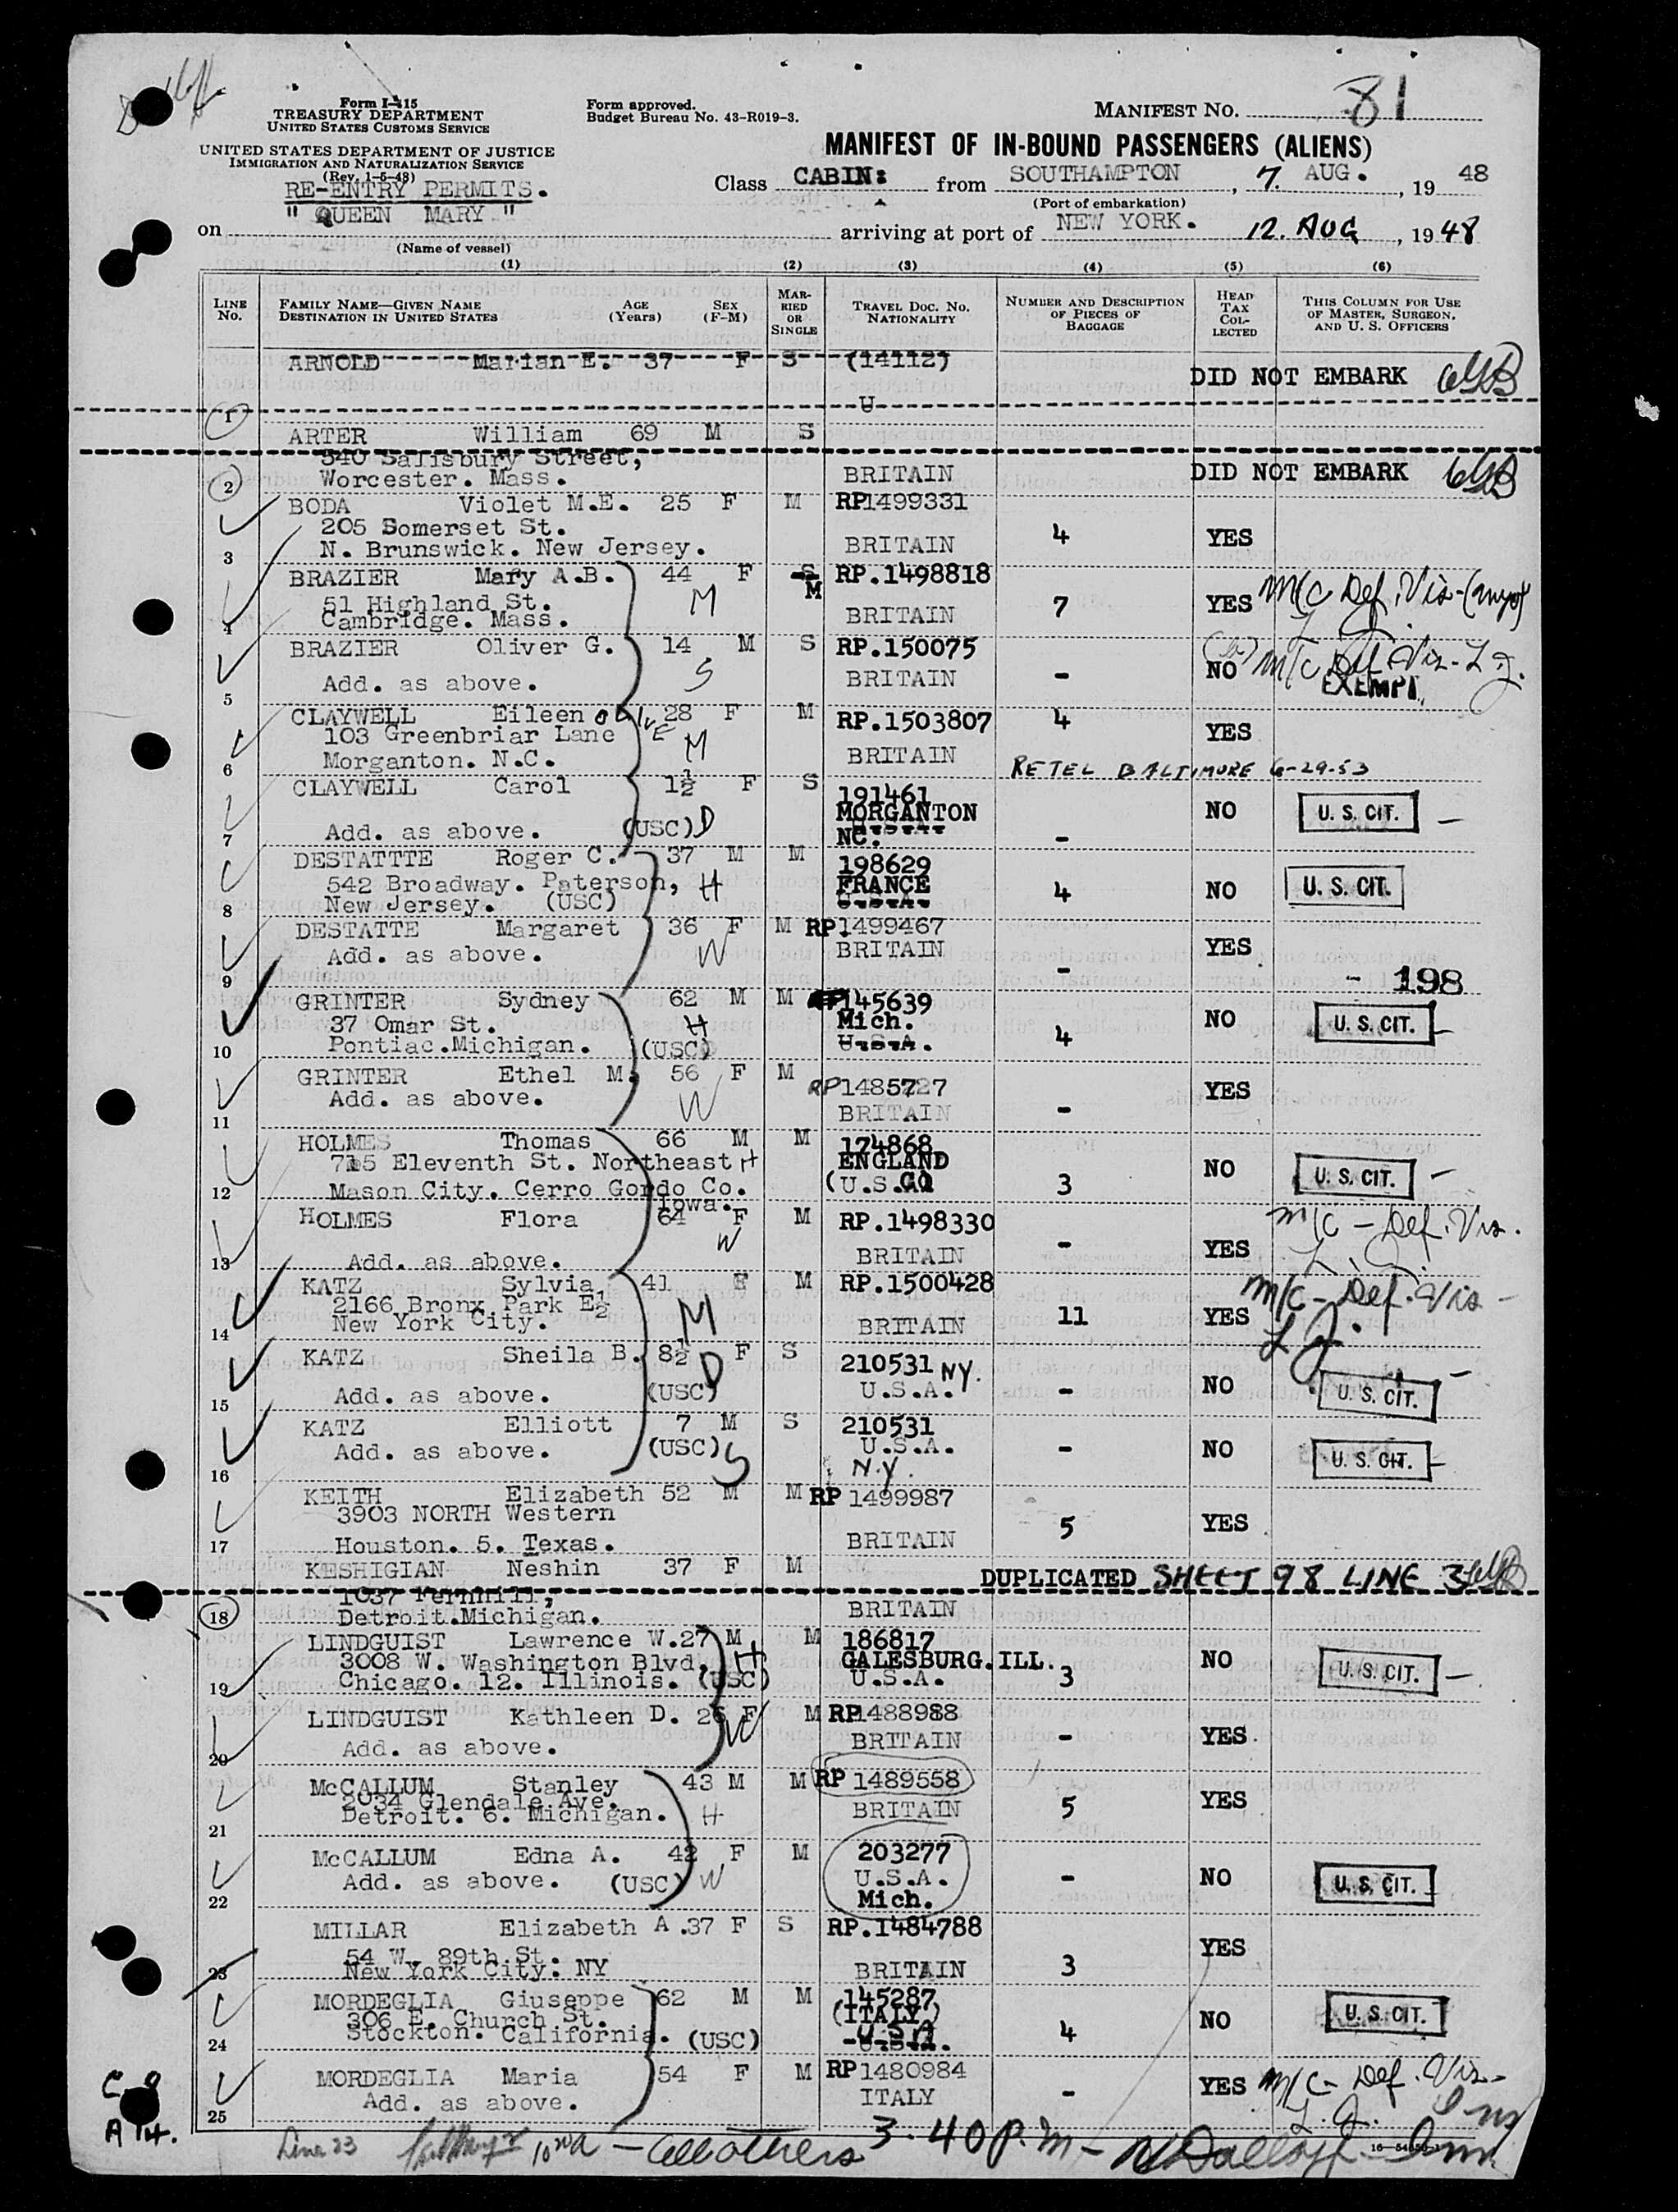 Form I-415
TREASURY DEPARTMENT
UNITED STATES CUSTOMS SERVICE
UNITED STATES DEPARTMENT OF JUSTICE
IMMIGRATION AND NATURALIZATION SERVICE
(Rev. 1-5-48)
Form approved.
Budget Bureau No. 43-R019-3.
MANIFEST NO. 81
MANIFEST OF IN-BOUND PASSENGERS (ALIENS)
RE-ENTRY PERMITS.
Class CABIN: from SOUTHAMPTON, 7. AUG., 1948
(Port of embarkation)
on " QUEEN MARY " arriving at port of NEW YORK. 12. AUG, 1948
(Name of vessel)
(1) (2) (3) (4) (5) (6)
LINE No. FAMILY NAME—GIVEN NAME DESTINATION IN UNITED STATES AGE (Years) SEX (F-M) MARRIED OR SINGLE TRAVEL DOC. NO. NATIONALITY NUMBER AND DESCRIPTION OF PIECES OF BAGGAGE HEAD TAX COLLECTED THIS COLUMN FOR USE OF MASTER, SURGEON, AND U. S. OFFICERS
ARNOLD Marian E. 37 F S (14112)
DID NOT EMBARK
1 U
ARTER William 69 M S
340 Salisbury Street,
2 Worcester. Mass. BRITAIN DID NOT EMBARK
BODA Violet M.E. 25 F M RP1499331
205 Somerset St. 4 YES
3 N. Brunswick. New Jersey. BRITAIN
BRAZIER Mary A.B. 44 F S M RP.1498818
51 Highland St. M 7 YES M/C Def. Vis-
4 Cambridge. Mass. BRITAIN L.J.
BRAZIER Oliver G. 14 M S RP.150075
S - NO M/C Def. Vis- L J.
5 Add. as above. BRITAIN EXEMPT.
CLAYWELL Eileen OLIVE 28 F M RP.1503807 4
103 Greenbriar Lane M YES
6 Morganton. N.C. BRITAIN RETEL BALTIMORE 6-29-53
CLAYWELL Carol 1½ F S 191461
MORGANTON NO U. S. CIT.
7 Add. as above. (USC) D NC. -
DESTATTTE Roger C. 37 M M 198629
542 Broadway. Paterson, H FRANCE 4 NO U. S. CIT.
8 New Jersey. (USC) U.S.A.
DESTATTE Margaret 36 F M RP.1499467
Add. as above. W BRITAIN YES
9 - - 198
GRINTER Sydney 62 M M 145639
37 Omar St. H Mich. NO U. S. CIT.
10 Pontiac.Michigan. (USC) U.S.A. 4
GRINTER Ethel M. 56 F M RP1485727 YES
Add. as above. W
11 BRITAIN -
HOLMES Thomas 66 M M 174868
715 Eleventh St. Northeast H ENGLAND NO U. S. CIT.
12 Mason City. Cerro Gordo Co. (U.S. 3
Iowa.
HOLMES Flora 64 F M RP.1498330 M/C - Def. Vis.
W - YES L.J.
13 Add. as above. BRITAIN
KATZ Sylvia 41 F M RP.1500428 M/C - Def. Vis -
2166 Bronx Park E½ M 11 YES L J.
14 New York City. BRITAIN
KATZ Sheila B. 8½ F S 210531 NY.
D
15 Add. as above. (USC) U.S.A. - NO U. S. CIT.
KATZ Elliott 7 M S 210531
Add. as above. (USC) S U.S.A. - NO U. S. CIT.
16 N.Y.
KEITH Elizabeth 52 M M RP 1499987
3903 NORTH Western 5 YES
17 Houston. 5. Texas. BRITAIN
KESHIGIAN Neshin 37 F M DUPLICATED SHEET 98 LINE 3
1037 Fernhill,
18 Detroit.Michigan. BRITAIN
LINDGUIST Lawrence W. 27 M M 186817
3008 W. Washington Blvd. H GALESBURG.ILL. NO U. S. CIT.
19 Chicago. 12. Illinois. (USC) U.S.A. 3
LINDGUIST Kathleen D. 26 F M RP1488988
20 Add. as above. W BRITAIN - YES
McCALLUM Stanley 43 M M RP 1489558
2034 Glendale Ave. YES
21 Detroit. 6. Michigan. H BRITAIN 5
McCALLUM Edna A. 42 F M 203277
Add. as above. (USC) W U.S.A. - NO U. S. CIT.
22 Mich.
MILLAR Elizabeth A. 37 F S RP.1484788
54 W. 89th St. YES
23 New York City. NY BRITAIN 3
MORDEGLIA Giuseppe 62 M M 145287
306 E. Church St. (ITALY) NO U. S. CIT.
24 Stockton. California. (USC) U.S.A. 4
MORDEGLIA Maria 54 F M RP 1480984
Add. as above. ITALY - YES M/C- Def. Vis-
25 L.J.
C 9
A 14.
Line 23 - All others 3.40 P.M -